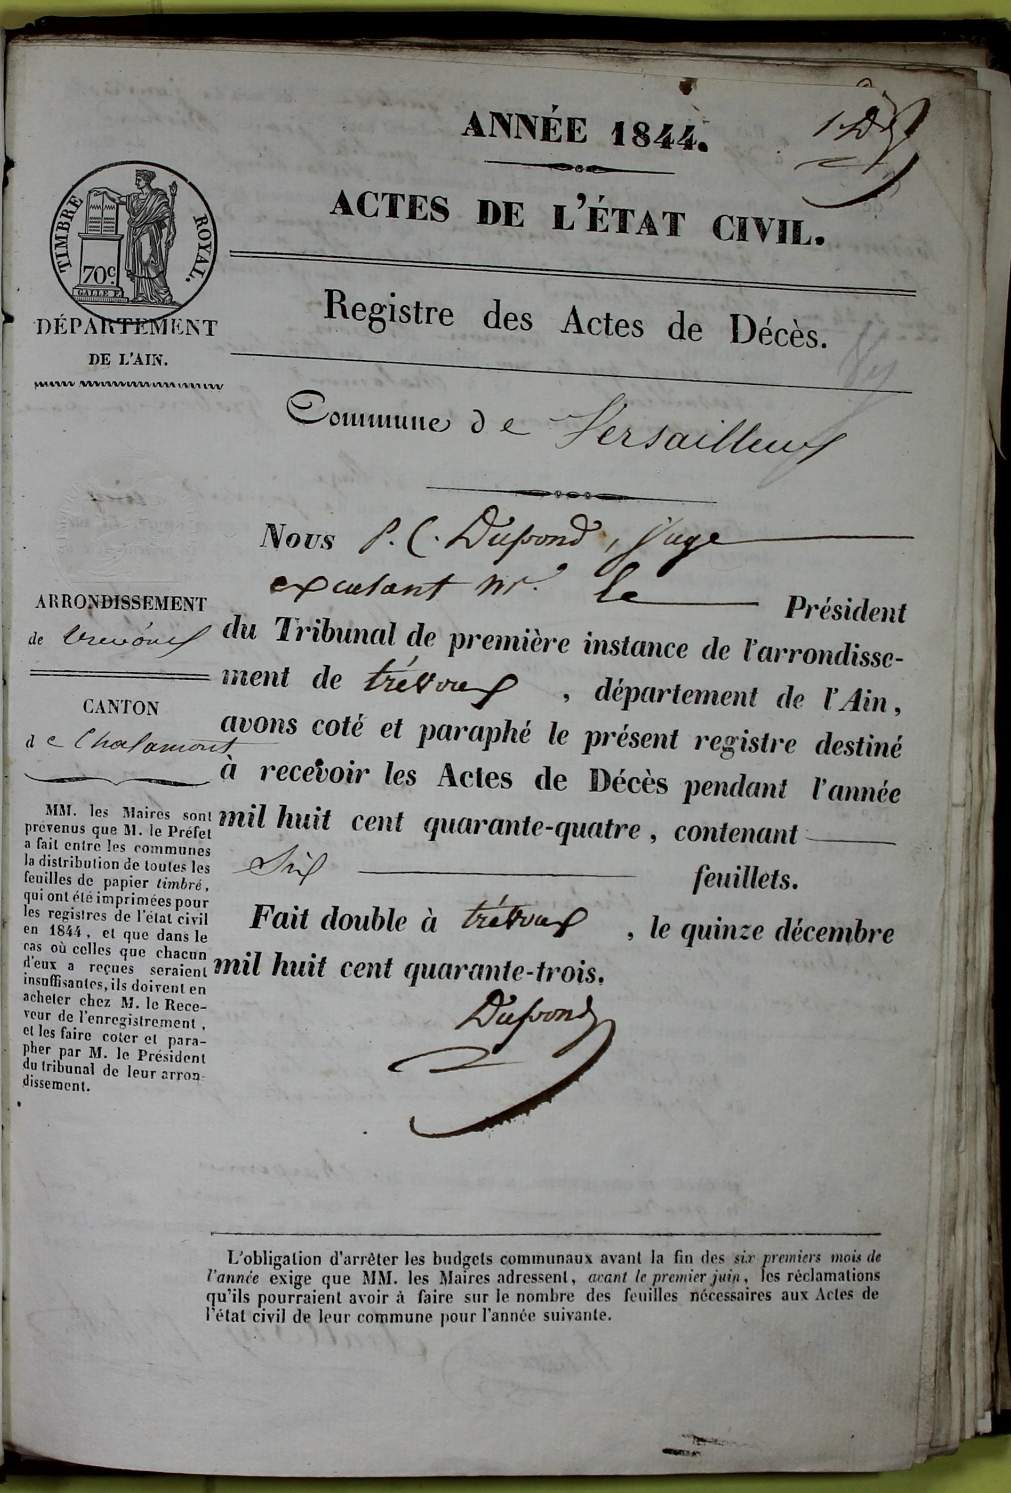 ANNÉE 1844.
ACTES DE L'ÉTAT CIVIL.
TIMBRE ROYAL.
70c.
GALLE F.
DÉPARTEMENT
DE L'AIN.
Registre des Actes de Décès.
Commune de Versailleux
Nous P. C. Dupond, Juge
excusant Mr. le Président
du Tribunal de première instance de l'arrondisse-
ment de trévoux, département de l'Ain,
avons coté et paraphé le présent registre destiné
à recevoir les Actes de Décès pendant l'année
mil huit cent quarante-quatre, contenant
Six feuillets.
Fait double à trévoux, le quinze décembre
mil huit cent quarante-trois.
Dupond
ARRONDISSEMENT
de trévoux
CANTON
de Chalamont
MM. les Maires sont
prévenus que M. le Préfet
a fait entre les communes
la distribution de toutes les
feuilles de papier timbré,
qui ont été imprimées pour
les registres de l'état civil
en 1844, et que dans le
cas où celles que chacun
d'eux a reçues seraient
insuffisantes, ils doivent en
acheter chez M. le Rece-
veur de l'enregistrement,
et les faire coter et para-
pher par M. le Président
du tribunal de leur arron-
dissement.
L'obligation d'arrêter les budgets communaux avant la fin des six premiers mois de
l'année exige que MM. les Maires adressent, avant le premier juin, les réclamations
qu'ils pourraient avoir à faire sur le nombre des feuilles nécessaires aux Actes de
l'état civil de leur commune pour l'année suivante.